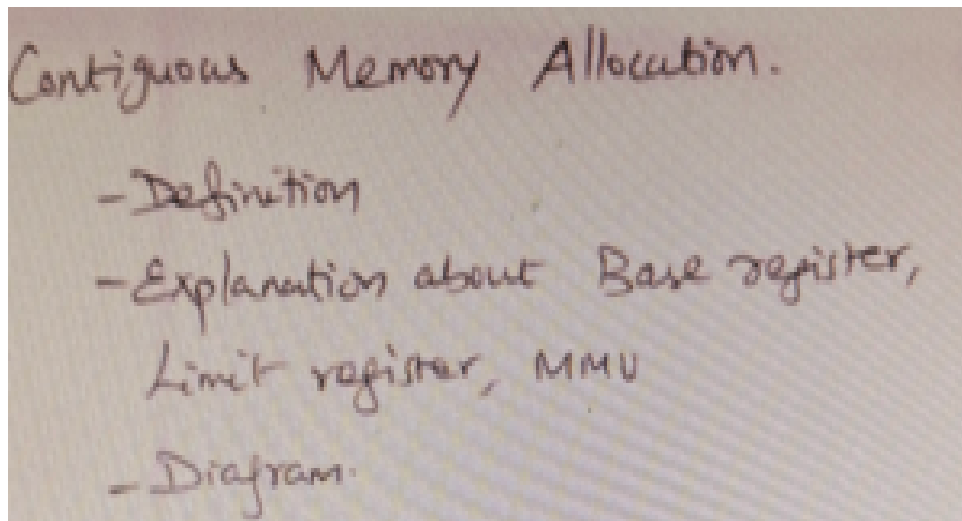 Contiguous Memory Allocation.
- Definition
- Explanation about Base register,
Limit register, MMU
- Diagram.